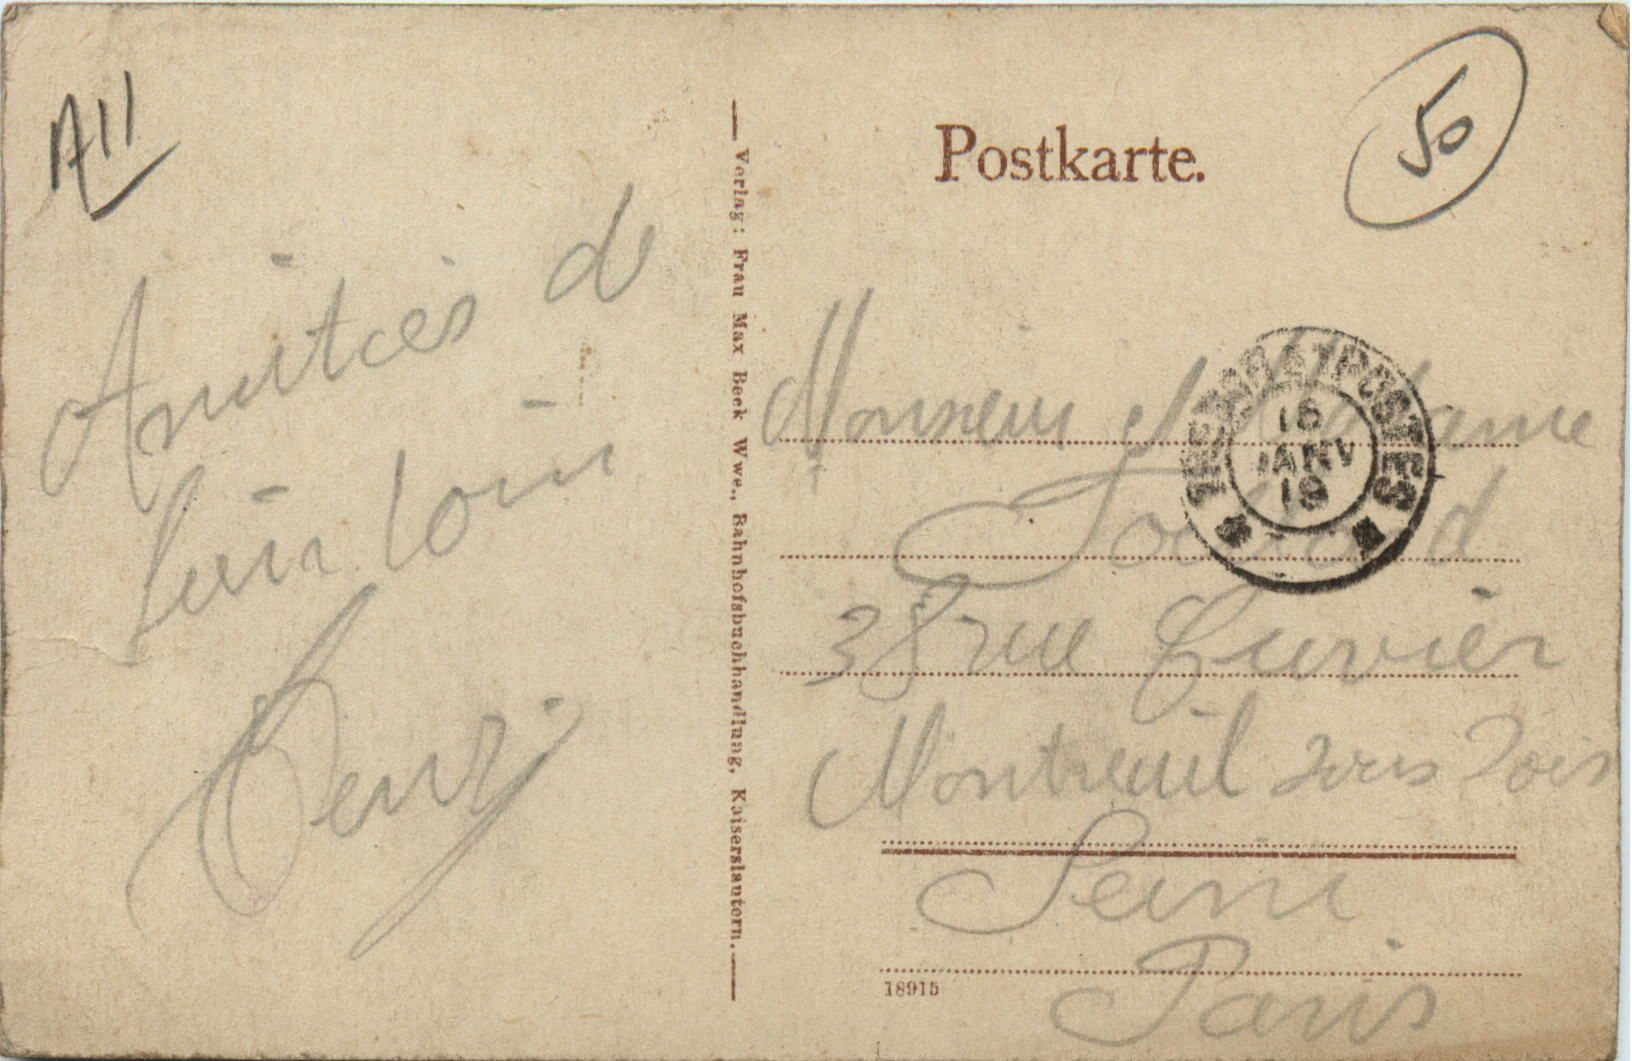 A11
Amitiés de
loin
Postkarte.
50
Verlag: Frau Max Beck Wwe., Bahnhofsbuchhandlung, Kaiserslautern.
TRESOR ET POSTES
16
JANV
19
Monsieur et Madame
38 rue Cuvier
Montreuil sous Bois
Seine
Paris
18915